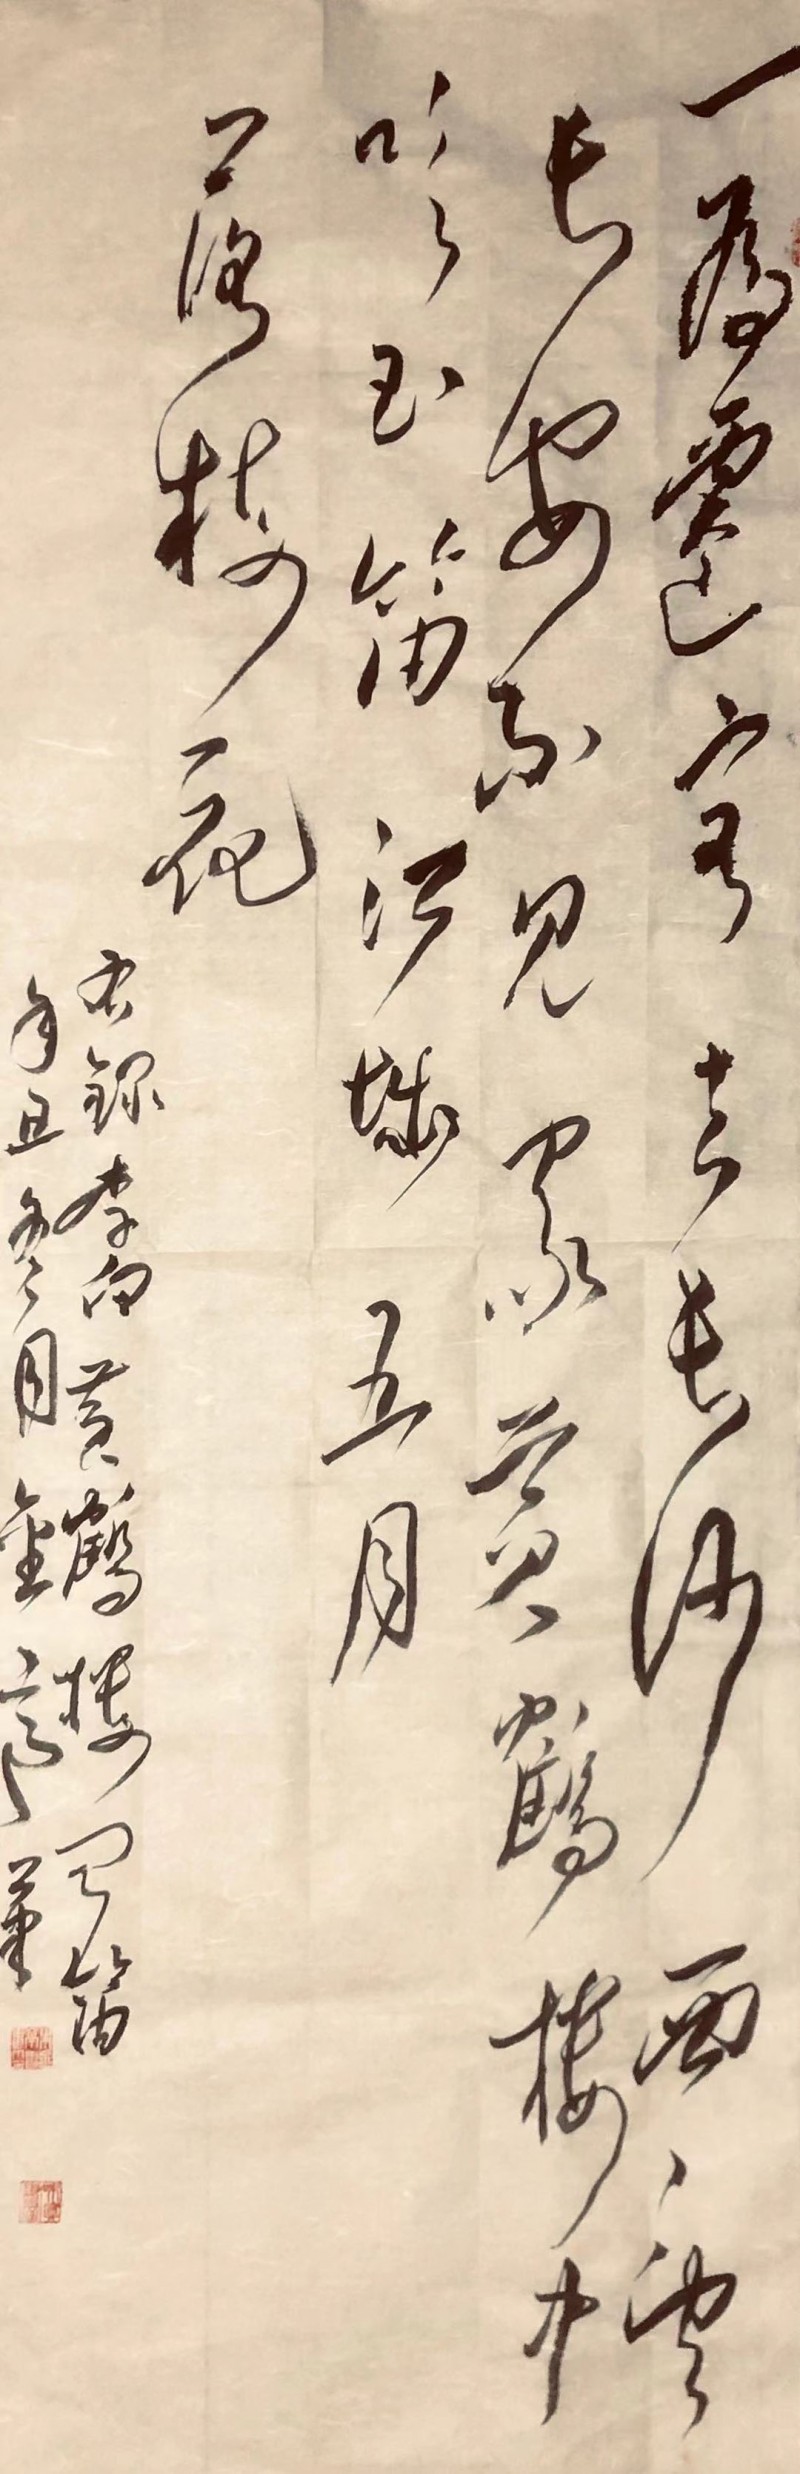 一為遷客去長沙西望
長安不見家黃鶴樓中
吹玉笛江城五月
落梅花
右錄李白黃鶴樓聞笛
辛丑冬月